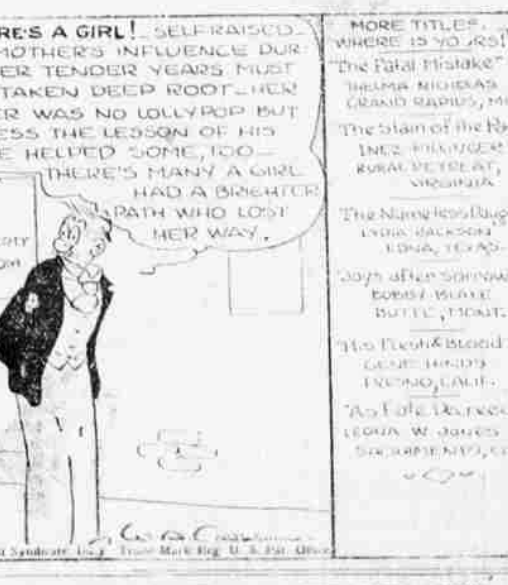 RE'S A GIRL! SELF RAISED_
MOTHER'S INFLUENCE DUR-
ER TENDER YEARS MUST
TAKEN DEEP ROOT_HER
ER WAS NO LOLLYPOP BUT
ESS THE LESSON OF HIS
E HELPED SOME, TOO_
THERE'S MANY A GIRL
HAD A BRIGHTER
PATH WHO LOST
HER WAY.
MORE TITLES.
WHERE IS YOURS?
"The Fatal Mistake"
THELMA NICHOLAS
GRAND RAPIDS, M
The Stain of the
INEZ
RURAL RETREAT,
VIRGINIA
The Nameless
LYDIA JACKSON
EDNA, TEXAS
Joys after Sorrow
BOBBY BLAKE
BUTTE, MONT.
"His Flesh & Blood
GENE HINDS
FRESNO, CALIF.
"As Fate Decreed
LEONA W. JONES
SACRAMENTO, C
Syndicate, Inc. Trade Mark Reg. U. S. Pat. Office